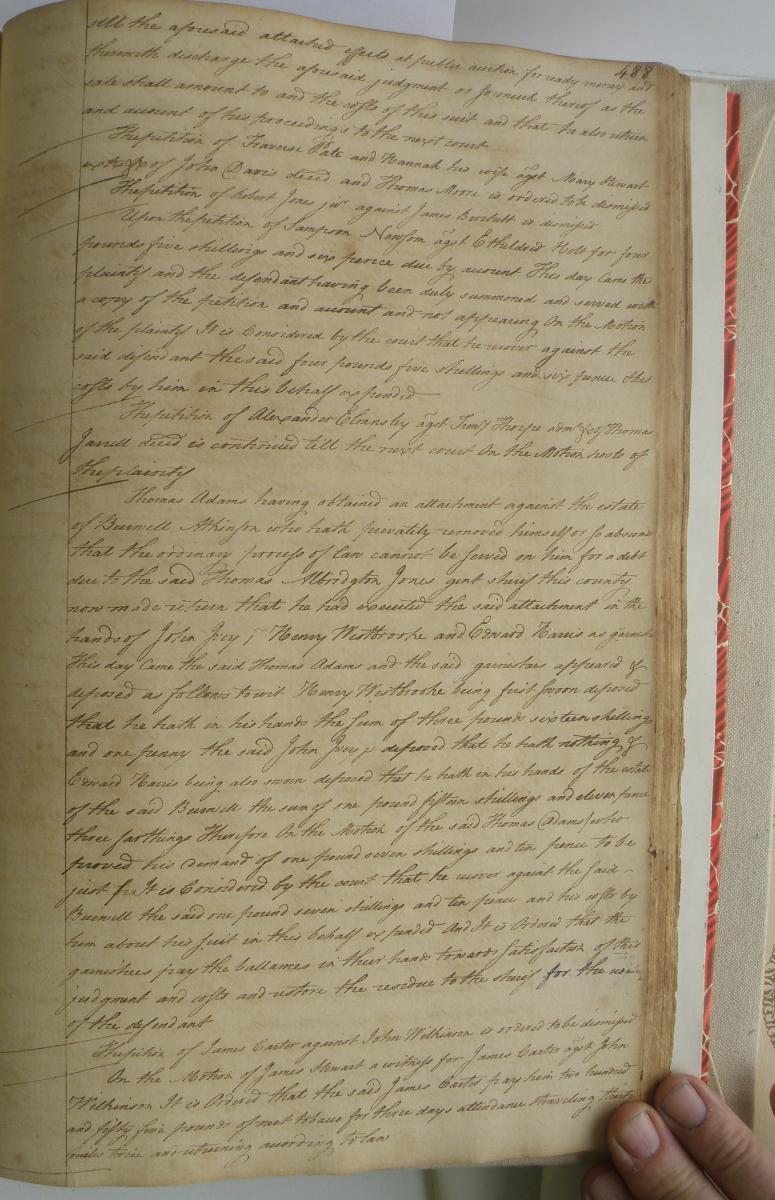 488
sell the aforesaid attached effects at public auction for ready money and
therewith discharge the aforesaid judgment or so much thereof as the
sale shall amount to and the costs of this suit and that he also return
and account of his proceedings to the next court
The petition of Traverse Pate and Hannah his wife agst Mary Stewart
of John Davis deced and Thomas Moore is ordered to be dismised
The petition of Robert Jones junr against James is dismised
Upon the petition of Sampson Newsom agst Etheldred Holt for four
pounds five shillings and six pence due by account This day Came the
plaintif and the defendant having been duly summoned and served with
a copy of the petition and account and not appearing On the Motion
of the plaintif It is Considered by the court that he recover against the
said defendant the said four pounds five shillings and six pence this
costs by him in this behalf expended
The petition of Alexander agst Timy Thorpe admr &c of Thomas
Jarrell deced is continued till the next court On the Motion & costs of
the plaintif
Thomas Adams having obtained an attachment against the estate
of Burwell Atkinson who hath privately removed himself or so abscon
that the ordinary process of law cannot be served on him for a debt
due to the said Thomas Albridgton Jones gent sherif this county
now made return that he had executed the said attachment in the
hands of John Ivey Henry Westbrooke and Edward Harris as garnish
This day Came the said Thomas Adams and the said garnishees appeared &
deposed as follows to wit Henry Westbrooke being first sworn deposed
that he hath in his hands the sum of three pounds sixteen shillings
and one penny the said John Ivey deposed that he hath nothing &
Edward Harris being also sworn deposed that he hath in his hands of the estate
of the said Burwell the sum of one pound fifteen shillings and eleven pence
three farthings Therefore On the Motion of the said Thomas Adams who
proved his demand of one pound seven shillings and ten pence to be
just It is Considered by the court that he recover against the said
Burwell the said one pound seven shillings and ten pence and his costs by
him about his suit in this behalf expended And It is Ordered that the
garnishees pay the ballances in their hands towards satisfaction of this
judgment and costs and restore the residue to the sherif for the use
of the defendant
The petition of James Carter against John Wilkinson is ordered to be dismised
On the Motion of James Stewart a witness for James Carter agst John
Wilkinson It is Ordered that the said James Carter pay him two hundred
and fifty five pounds of nett tobacco for three days attendance & traveling thirty
miles twice and returning according to law